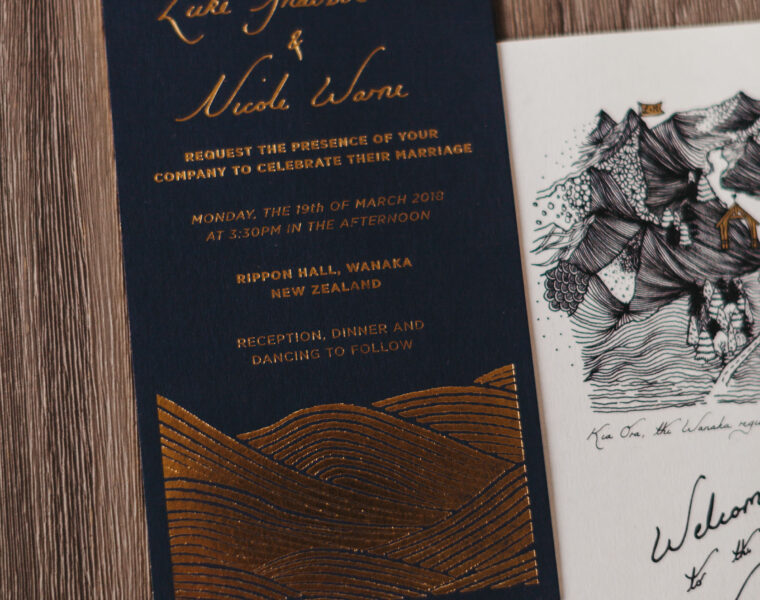 Luke
&
Nicole Warne
REQUEST THE PRESENCE OF YOUR
COMPANY TO CELEBRATE THEIR MARRIAGE
MONDAY, THE 19th OF MARCH 2018
AT 3:30PM IN THE AFTERNOON
RIPPON HALL, WANAKA
NEW ZEALAND
RECEPTION, DINNER AND
DANCING TO FOLLOW
Kia Ora, the Wanaka
Welcom
to the